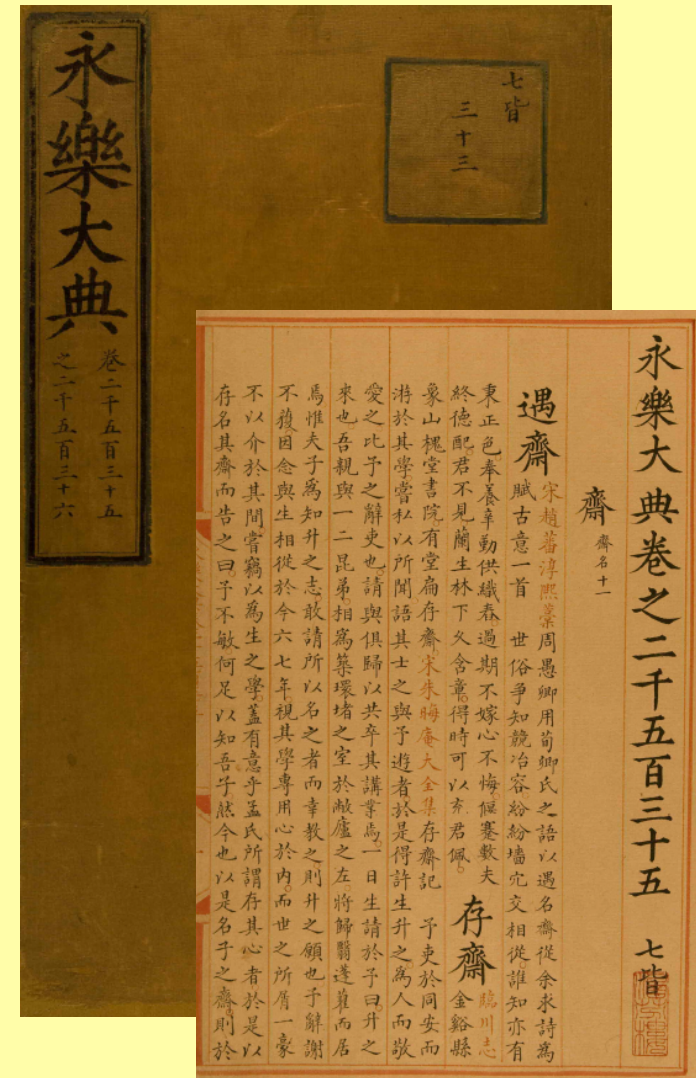 永樂大典
卷二千五百三十五
之二千五百三十六
七皆
三十三
永樂大典卷之二千五百三十五 七皆
齋 齋名十一
遇齋
宋趙蕃淳熙稾周愚卿用荀卿氏之語以遇名齋從余求詩為
賦古意一首 世俗爭知競冶容紛紛墻宂交相從。誰知亦有
秉正色。奉養辛勤供織舂。過期不嫁心不悔。偃蹇數夫
終德配。君不見蘭生林下久含章。得時可以充君佩。
存齋
臨川志
金谿縣
象山槐堂書院。有堂扁存齋。宋朱晦庵大全集存齋記 予吏於同安而
游於其學嘗私以所聞語其士之與予遊者於是得許生升之為人而敬
愛之比予之辭吏也。請與俱歸以共卒其講業焉。一日生請於予曰。升之
來也。吾親與一二昆弟。相為築環堵之室於敝廬之左。將歸翳蓬藋而居
焉惟夫子為知升之志敢請所以名之者而幸教之。則升之願也予辭謝
不獲。因念與生相從於今六七年。視其學專用心於內。而世之所屑一豪
不以介於其間。嘗竊以為生之學。蓋有意乎孟氏所謂存其心者於是以
存名其齋而告之曰。予不敏何足以知吾子然今也以是名子之齋。則於